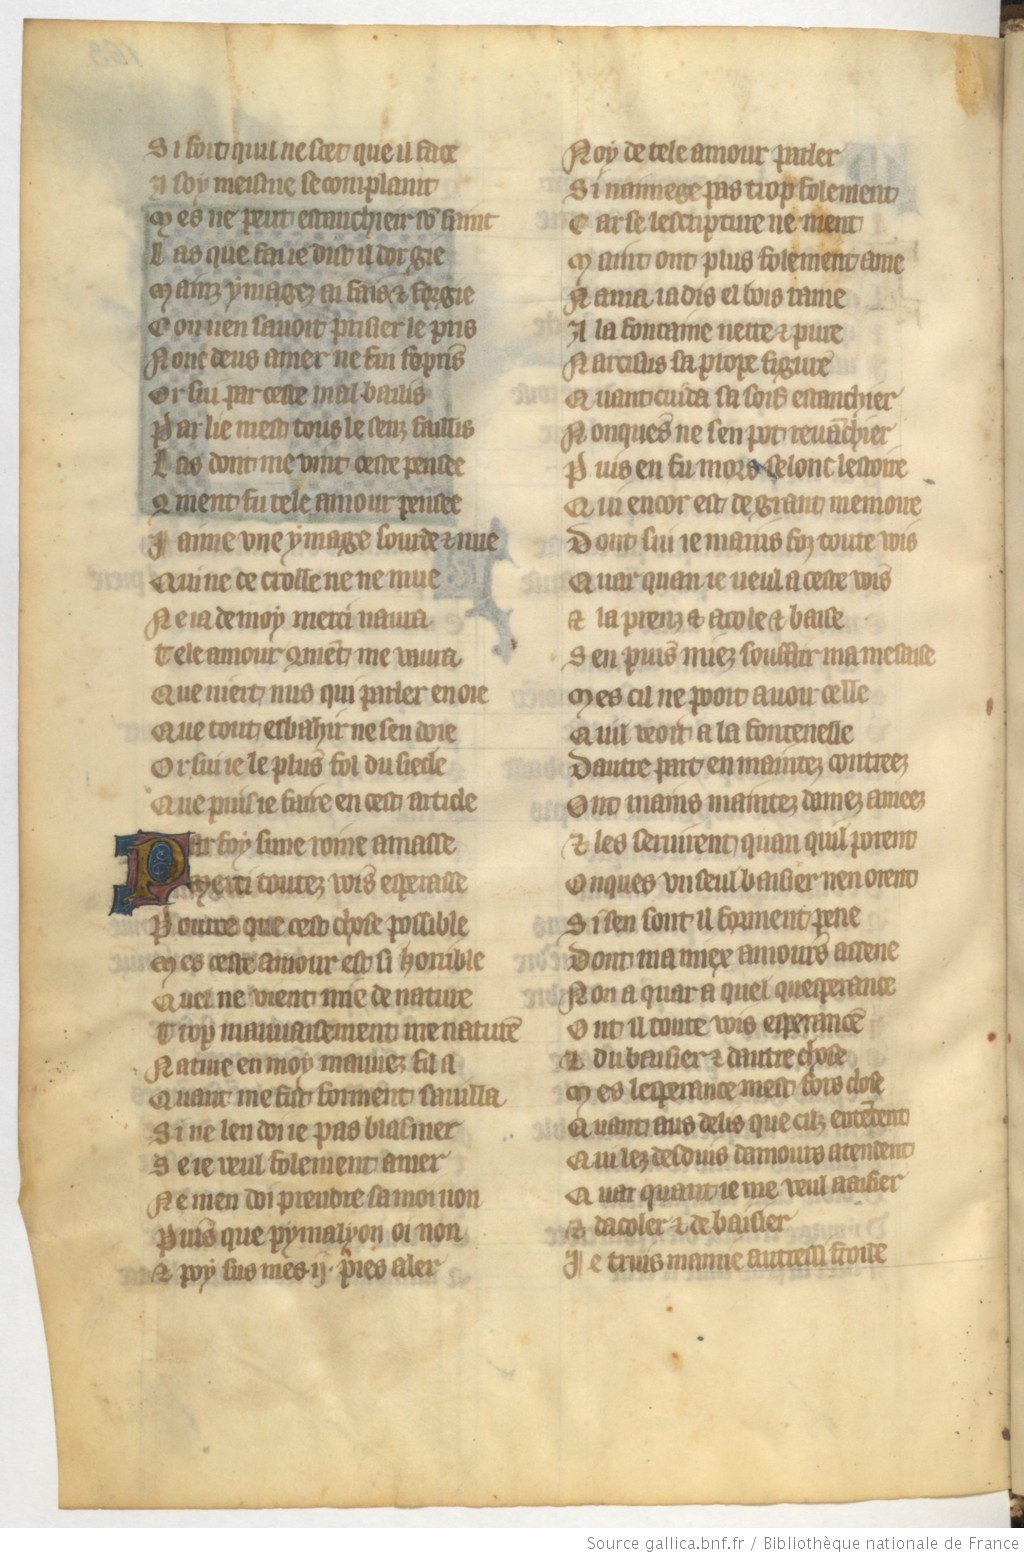 Si soit quil ne scet que il face
A soy meisme se complaint
Mes ne peut estanchieir sō haint
Las que fai ie dist il dor gie
Mainz ymagez ai fais & forgie
Con uen sauoit prisier le pris
Nonc deus amer ne fui sopris
Or sui par ceste mal baillis
Par lie mest tous le senz faillis
Las dont me vint ceste pensee
Qment fu tele amour pensee
Jaime vne ymage sourde & mue
Qui ne ce crolle ne ne mue
Ne ia de moy merci naura
Tele amour qment me naura
Que niert nus qui parler en oie
Que tout esbahir ne sen doie
Or sui ie le plus fol du siecle
Que puis ie faire en cest article
Par foy sune roine amasse
Merci toutez vois esperasse
Pource que cest chose possible
Mes ceste amour est si horrible
Quel ne vient mie de nature
Trop mauuaisement me nature
Nature en moy mauuez fil a
Quant me fist forment sauilla
Si ne len doi ie pas blasmer
Se ie veul folement amer
Ne men doi prendre sa moi non
Puis que pymalyon oi non
& poy sus mes ·ij· pies aler
Noy de tele amour parler
Si naimege pas trop folement
Car se lescripture ne ment
Maint ont plus folement ame
Nama iadis el bois rame
A la fontaine nette & pure
Narcisus sa propre figure
Quant cuida sa soif estanchier
Nonques ne sen pot reuāchier
Puis en fu mors selonc lestoire
Qui encor est de grant memoire
Dont sui ie mains folz toute vois
Quar quan ie ueul a ceste vois
& la prenz & acole & baise
Sen puis miez souffrir ma mesaise
Mes cil ne pooit auoir celle
Quil veoit a la fontenelle
Dautre part en maintez contreez
Ont mains maintez damez ameez
& les seruirent quan quil porent
Onques vn seul baisier nen orent
Si sen sont il forment pene
Dont ma miex amours assene
Non a quar a quel quesperance
Ont il toute vois esperance
& du baisier & dautre chose
Mes lesperance mest fors close
Quant aus delis que cilz entēdent
Qui lez desduis damours atendent
Quar quant ie me veul aaisier
& dacoler & de baisier
Je truis mamie autressi froide
Source gallica.bnf.fr / Bibliothèque nationale de France